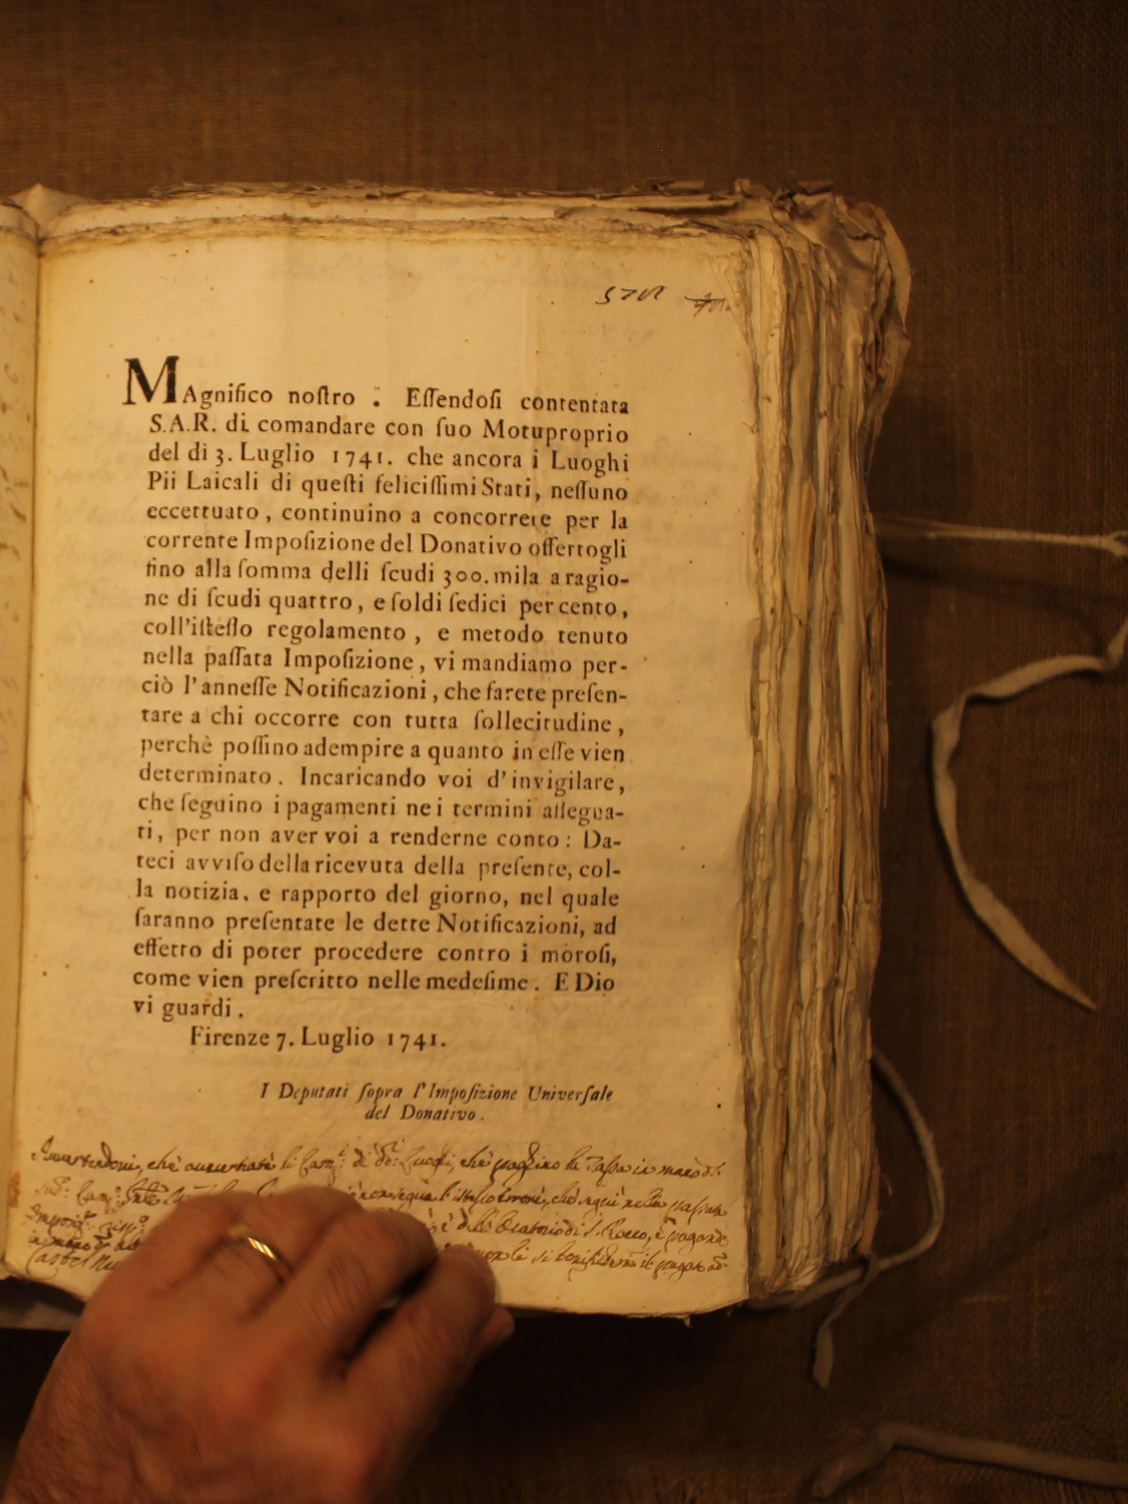 MAgnifico noſtro : Eſſendoſi contentata
S.A.R. di comandare con ſuo Motuproprio
del dì 3. Luglio 1741. che ancora i Luoghi
Pii Laicali di queſti feliciſſimi Stati, neſſuno
eccettuato, continuino a concorrere per la
corrente Impoſizione del Donativo offertogli
fino alla ſomma delli ſcudi 300. mila a ragio-
ne di ſcudi quattro, e ſoldi ſedici per cento,
coll'iſteſſo regolamento, e metodo tenuto
nella paſſata Impoſizione, vi mandiamo per-
ciò l'anneſſe Notificazioni, che farete preſen-
tare a chi occorre con tutta ſollecitudine,
perchè poſſino adempire a quanto in eſſe vien
determinato. Incaricando voi d'invigilare,
che ſeguino i pagamenti nei termini aſſegna-
ti, per non aver voi a renderne conto: Da-
teci avviſo della ricevuta della preſente, col-
la notizia, e rapporto del giorno, nel quale
ſaranno preſentate le dette Notificazioni, ad
effetto di poter procedere contro i moroſi,
come vien preſcritto nelle medeſime. E Dio
vi guardi.
Firenze 7. Luglio 1741.
I Deputati ſopra l'Impoſizione Univerſale
del Donativo.
che li di che paghino la Taſſa in mano
l'iſteſſo errore, che ſeguì nella paſſata
è dell' Oratorio di S. Rocco, e
non li si il